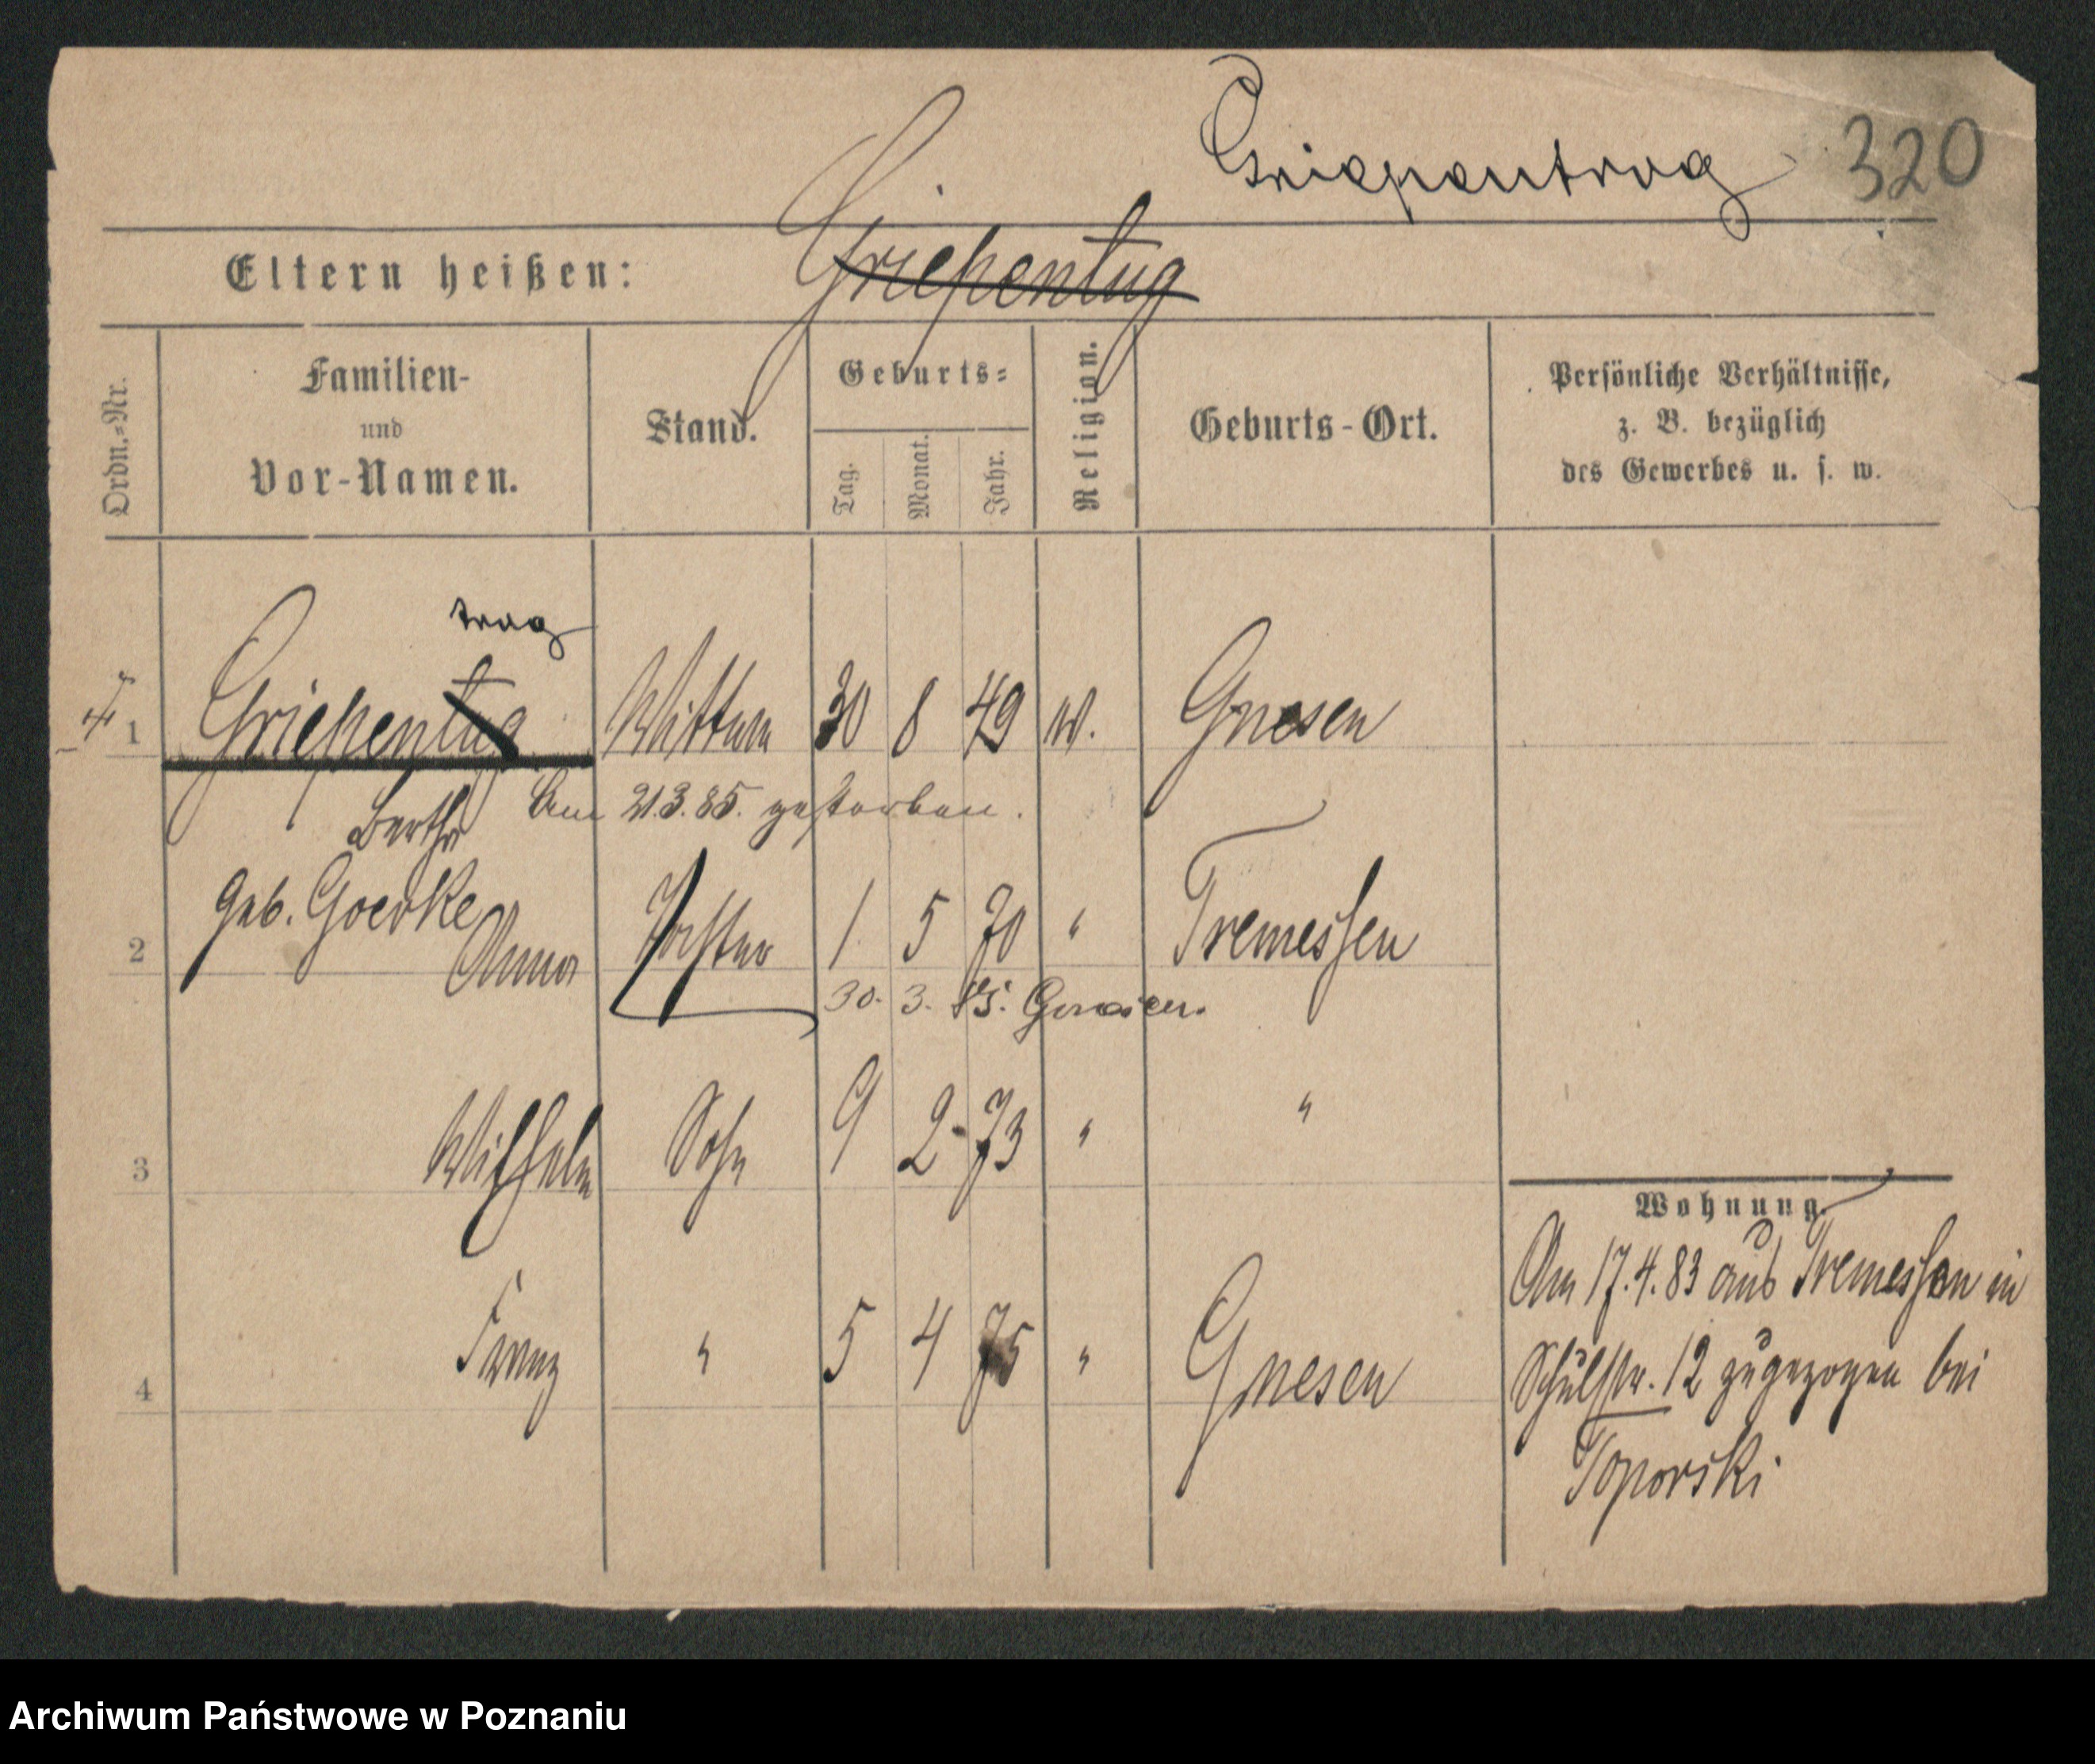 Griepentrog 320
Eltern heißen: Griepentug
Ordn.=Nr.
Familien-
und
Vor-Namen.
Stand.
Geburts=
Tag. Monat. Jahr.
Religion.
Geburts-Ort.
Persönliche Verhältnisse,
z. B. bezüglich
des Gewerbes u. s. w.
trog
1 Griepentug Wittwe 30 8 49 Gnesen
Bertha Am 21.3.85. gestorben.
geb. Goerke
2 Anna Tochter 1. 5 70 " Tremessen
30. 3. 85. Gnesen.
3 Wilhelm Sohn 9 2 73 " "
4 Franz " 5 4 75 " Gnesen
Wohnung.
Am 17.4.83 aus Tremessen in
Schulstr. 12 zugezogen bei
Toporski
Archiwum Państwowe w Poznaniu